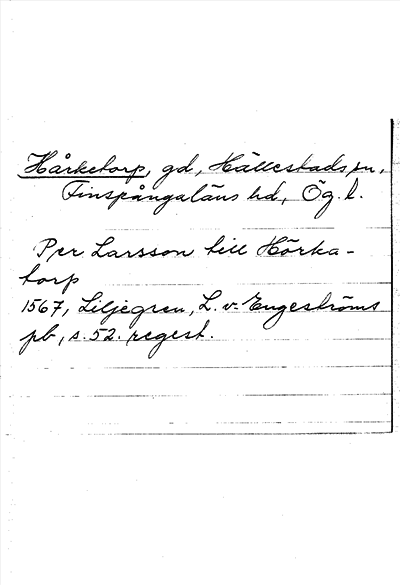 Hårketorp, gd, Hällestads sn,
Finspångaläns hd, Ög. l.
Per Larsson till Hörka-
torp
1567, Liljegren, L. v. Engeströms
pb, s. 52. regest.